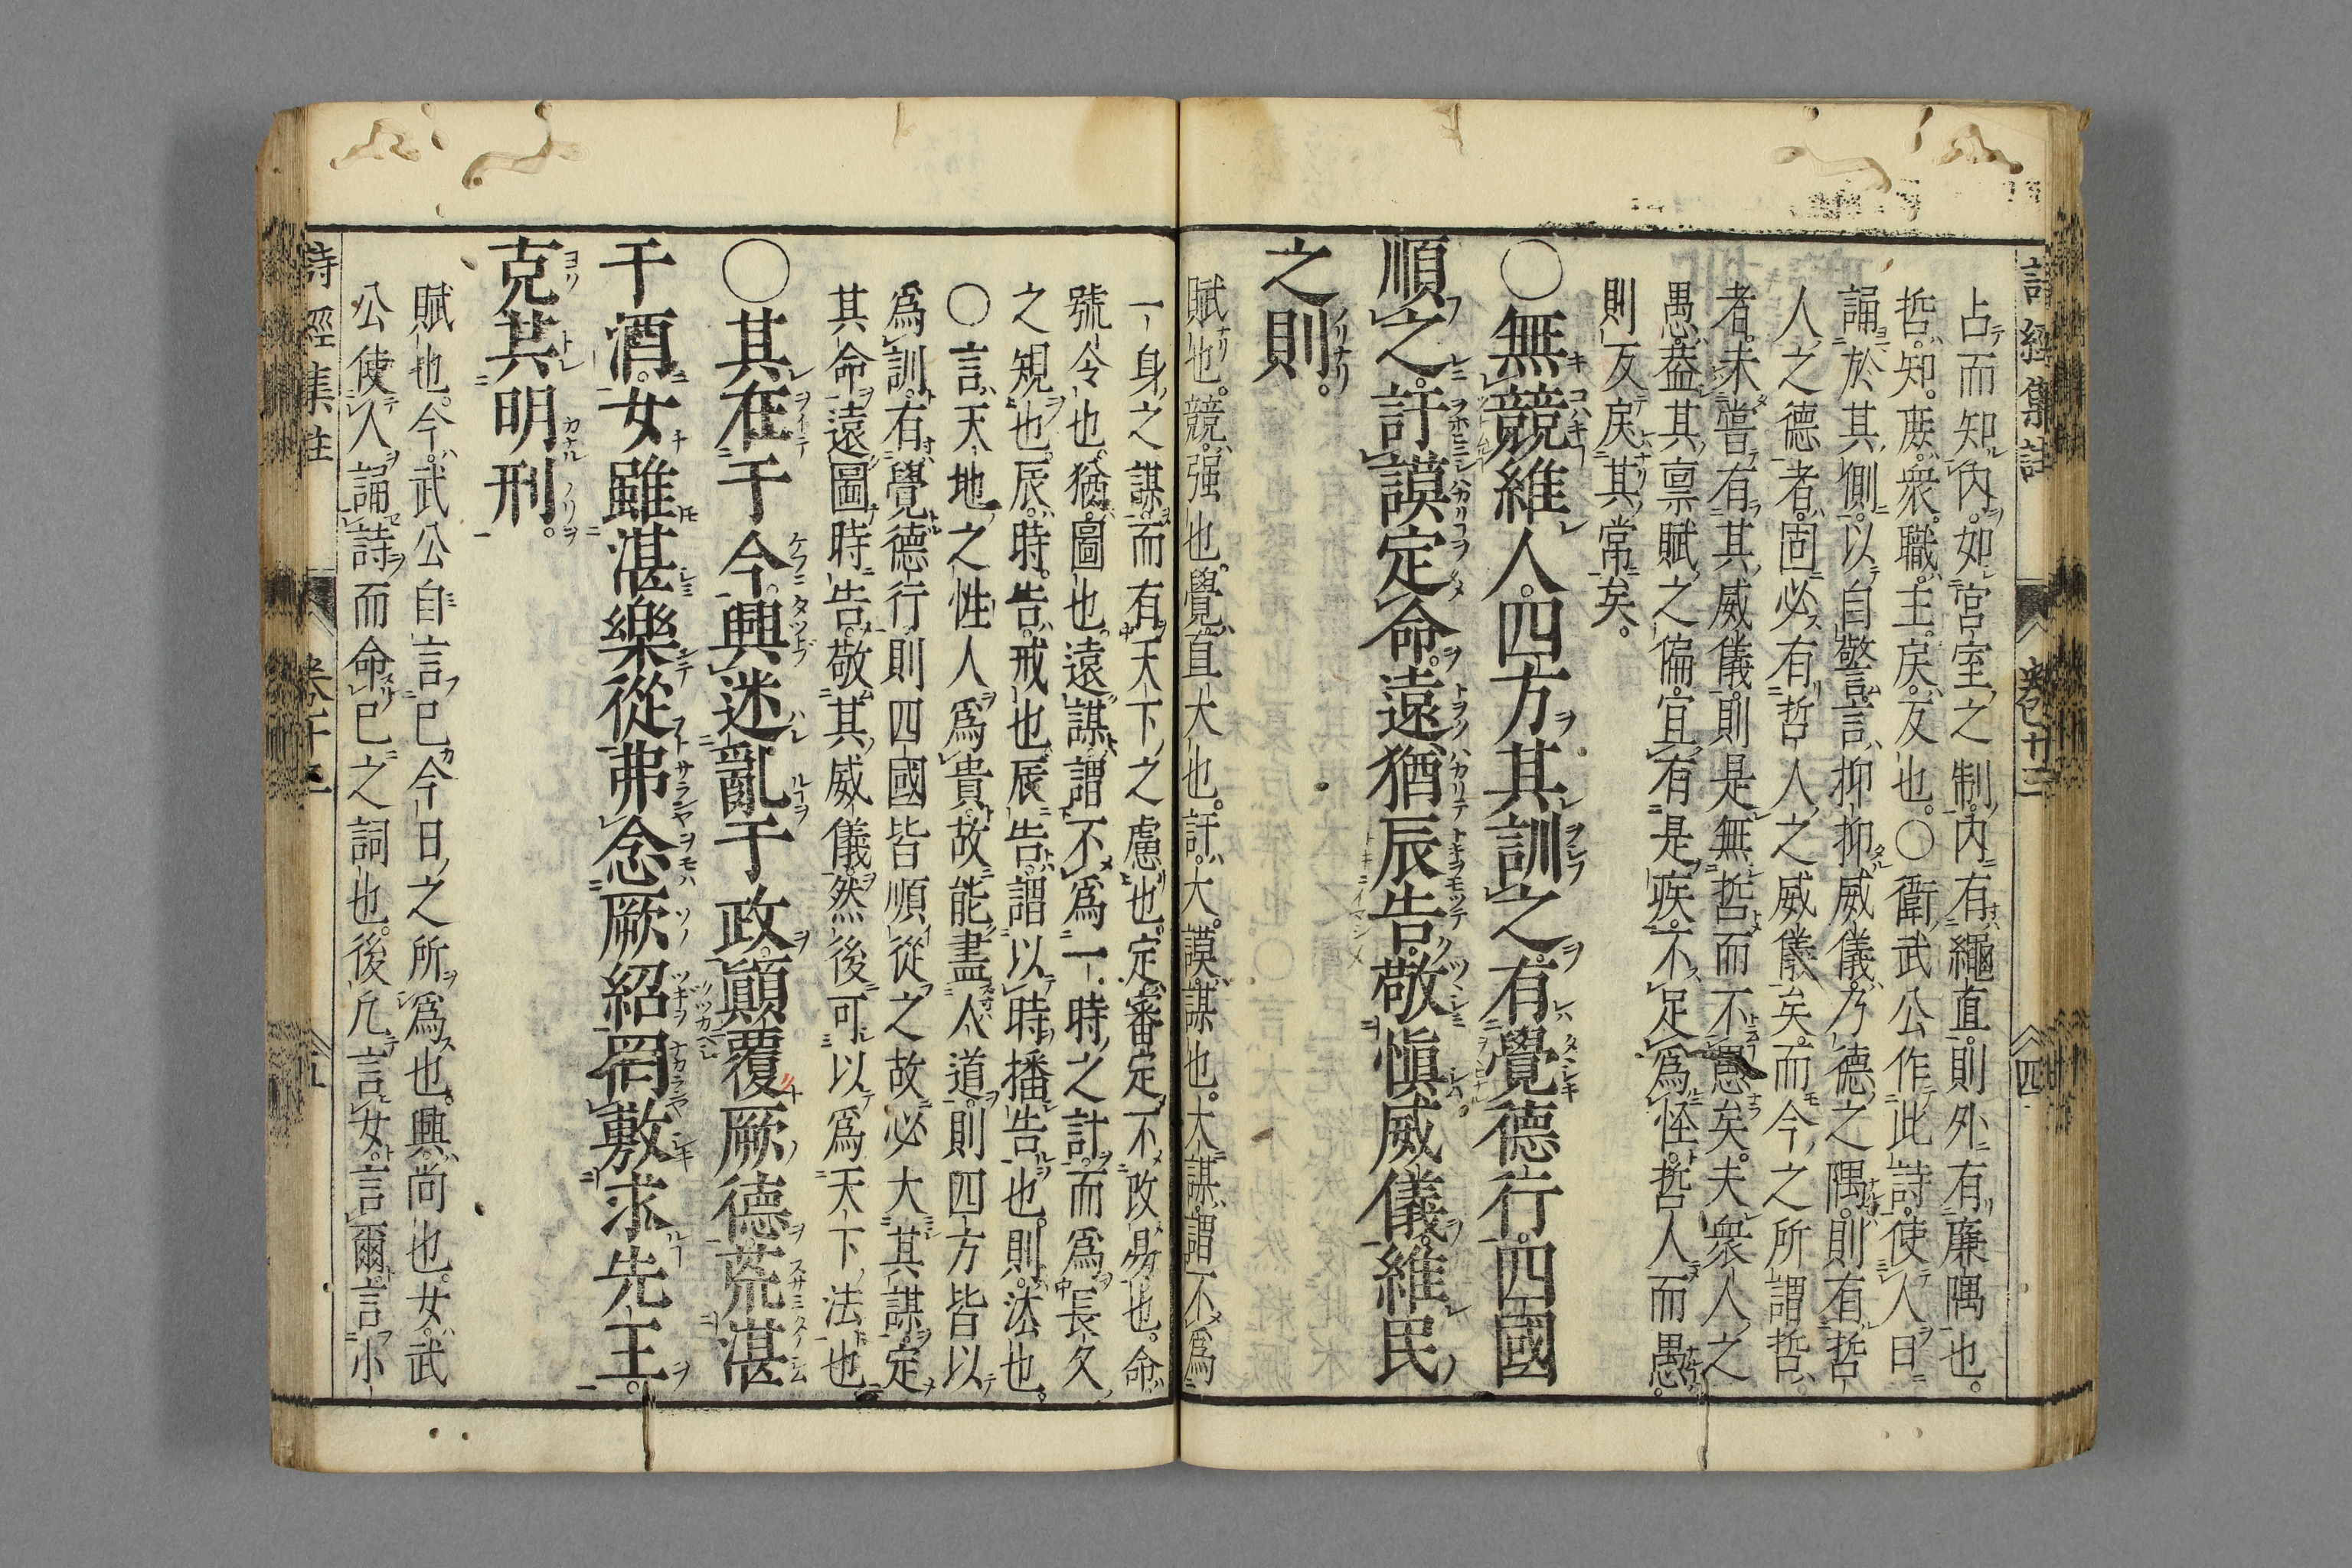 詩經集註
卷十三
四
占而知內如宮室之制內有繩直則外有廉隅也
哲知庶衆職主戾反也〇衛武公作此詩使人日
誦於其側以自警言抑抑威儀乃德之隅則有哲
人之德者固必有哲人之威儀矣而今之所謂哲
者未嘗有其威儀則是無哲而不愚矣夫衆人之
愚葢其禀賦之偏宜有是疾不足爲怪哲人而愚
則反戾其常矣
〇無競維人四方其訓之有覺德行四國
順之訏謨定命遠猶辰告敬愼威儀維民
之則
賦也競强也覺直大也訏大謨謀也大謀謂不爲
一身之謀而有天下之慮也定審定不改易也命
號令也猶圖也遠謀謂不爲一時之計而爲長久
之規也辰時告戒也辰告謂以時播告也則法也
〇言天地之性人爲貴故能盡人道則四方皆以
爲訓有覺德行則四國皆順從之故必大其謀定
其命遠圖時告敬其威儀然後可以爲天下法也
〇其在于今興迷亂于政顚覆厥德荒湛
于酒女雖湛樂從弗念厥紹罔敷求先王
克共明刑
賦也今武公自言已今日之所爲也興尚也女武
公使人誦詩而命已之詞也後凢言女言爾言小
詩經集註
五